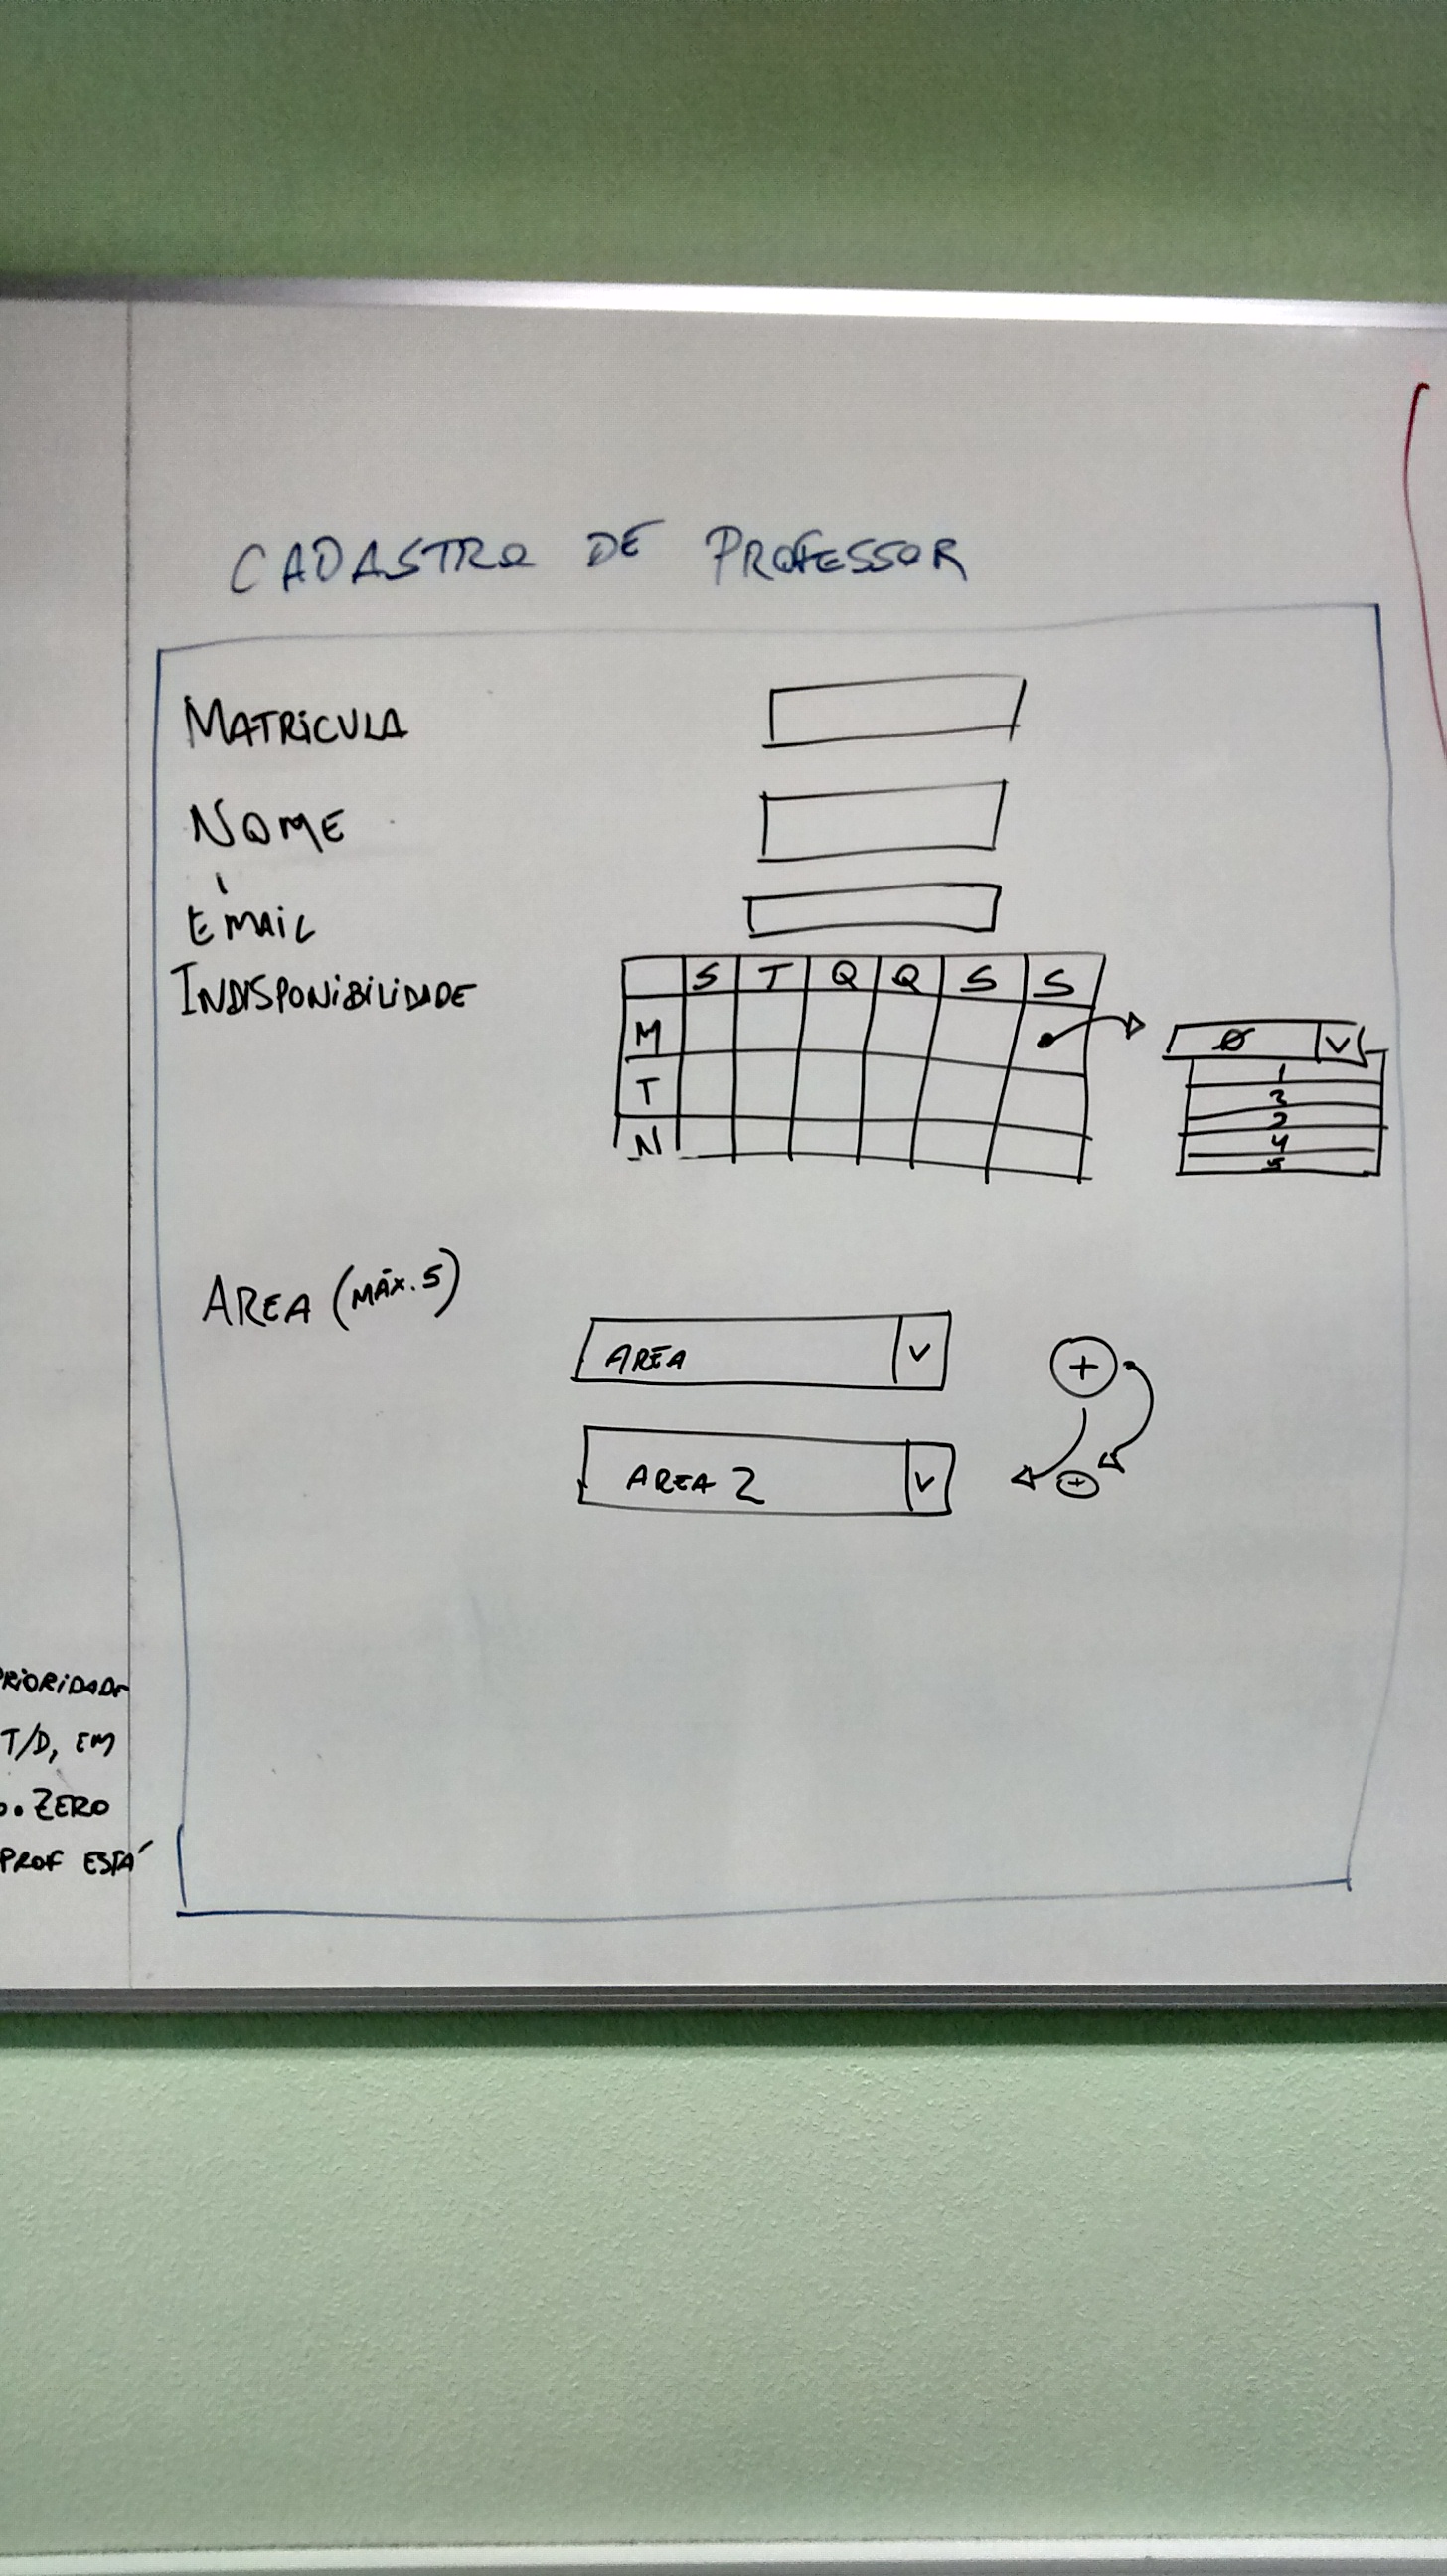 CADASTRO DE PROFESSOR
MATRICULA
NOME
EMAIL
INDISPONIBILIDADE
S T Q Q S S
M
T
N
Ø V
1
3
2
4
5
AREA (MÁX. 5)
AREA V
+
AREA 2 V
+
PRIORIDADE
T/D, EM
O. ZERO
PROF ESTÁ